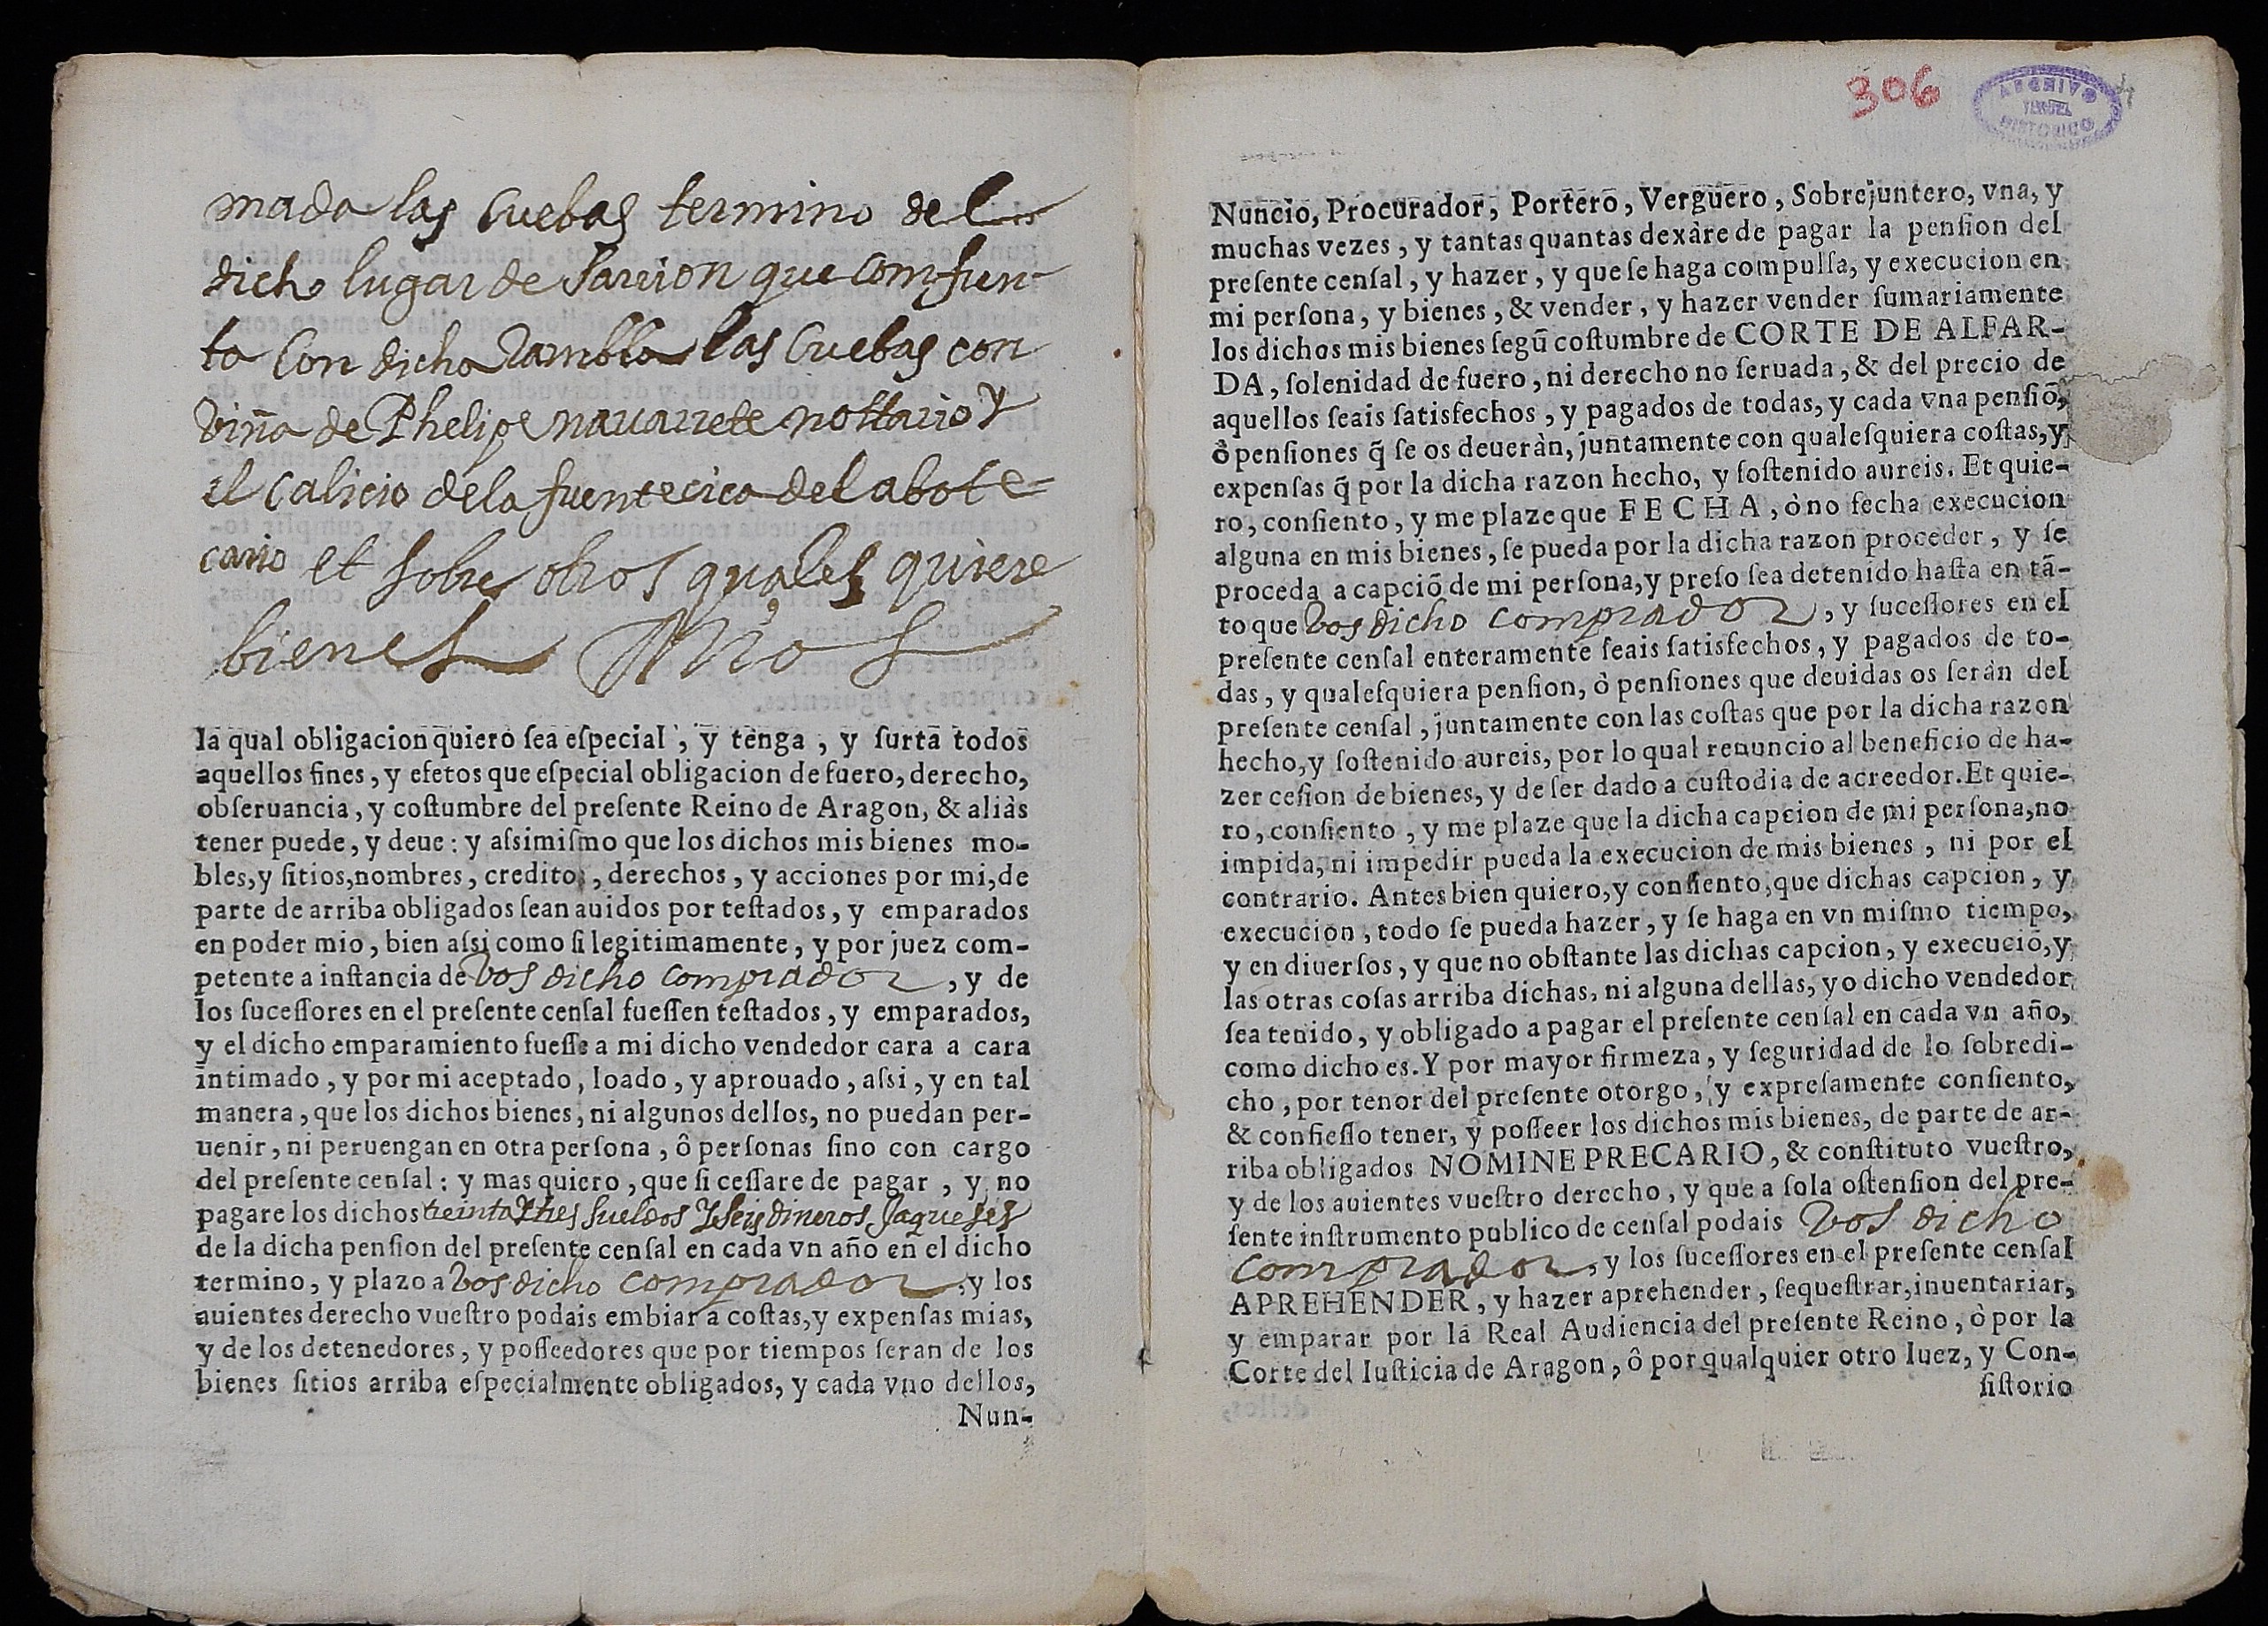 mada las Cuebas termino del
dicho lugar de Sarrion que comfron
ta Con dicha Rambla las Cuebas con
viña de Phelipe nauarrete nottario Y
el calicio dela fuentecica del abote=
cario et sobre otros quales quiere
bienes Mios
la qual obligacion quiero sea eſpecial, y tenga, y ſurta todos
aquellos fines, y efetos que eſpecial obligacion de fuero, derecho,
obſeruancia, y coſtumbre del preſente Reino de Aragon, & aliàs
tener puede, y deue: y aſsimiſmo que los dichos mis bienes mo-
bles, y ſitios, nombres, creditos, derechos, y acciones por mi, de
parte de arriba obligados ſean auidos por teſtados, y emparados
en poder mio, bien aſsi como ſi legitimamente, y por juez com-
petente a inſtancia de Vos dicho comprador, y de
los ſuceſſores en el preſente cenſal fueſſen teſtados, y emparados,
y el dicho emparamiento fueſſe a mi dicho vendedor cara a cara
intimado, y por mi aceptado, loado, y aprouado, aſsi, y en tal
manera, que los dichos bienes, ni algunos dellos, no puedan per-
uenir, ni peruengan en otra perſona, ô perſonas ſino con cargo
del preſente cenſal: y mas quiero, que ſi ceſſare de pagar, y no
pagare los dichos treinta Y tres Sueldos Y Seis dineros Jaqueses
de la dicha penſion del preſente cenſal en cada vn año en el dicho
termino, y plazo a Vos dicho comprador, y los
auientes derecho vueſtro podais embiar à coſtas, y expenſas mias,
y de los detenedores, y poſſeedores que por tiempos ſeran de los
bienes ſitios arriba eſpecialmente obligados, y cada vno dellos,
Nun-
306
ARCHIVO
TERUEL
HISTORICO
Nuncio, Procurador, Portero, Verguero, Sobrejuntero, vna, y
muchas vezes, y tantas quantas dexàre de pagar la penſion del
preſente cenſal, y hazer, y que ſe haga compulſa, y execucion en
mi perſona, y bienes, & vender, y hazer vender ſumariamente
los dichos mis bienes ſegũ coſtumbre de CORTE DE ALFAR-
DA, ſolenidad de fuero, ni derecho no ſeruada, & del precio de
aquellos ſeais ſatisfechos, y pagados de todas, y cada vna penſiõ,
ò penſiones q̃ ſe os deueràn, juntamente con qualeſquiera coſtas, y
expenſas q̃ por la dicha razon hecho, y ſoſtenido aureis. Et quie-
ro, conſiento, y me plaze que FECHA, ò no fecha execucion
alguna en mis bienes, ſe pueda por la dicha razon proceder, y ſe
proceda a capciõ de mi perſona, y preſo ſea detenido haſta en tã-
to que Vos dicho comprador, y ſuceſſores en el
preſente cenſal enteramente ſeais ſatisfechos, y pagados de to-
das, y qualeſquiera penſion, ò penſiones que deuidas os ſeràn del
preſente cenſal, juntamente con las coſtas que por la dicha razon
hecho, y ſoſtenido aureis, por lo qual renuncio al beneficio de ha-
zer ceſion de bienes, y de ſer dado a cuſtodia de acreedor. Et quie-
ro, conſiento, y me plaze que la dicha capcion de mi perſona, no
impida, ni impedir pueda la execucion de mis bienes, ni por el
contrario. Antes bien quiero, y conſiento, que dichas capcion, y
execucion, todo ſe pueda hazer, y ſe haga en vn miſmo tiempo,
y en diuerſos, y que no obſtante las dichas capcion, y execucio, y
las otras coſas arriba dichas, ni alguna dellas, yo dicho vendedor
ſea tenido, y obligado a pagar el preſente cenſal en cada vn año,
como dicho es. Y por mayor firmeza, y ſeguridad de lo ſobredi-
cho, por tenor del preſente otorgo, y expreſamente conſiento,
& confieſſo tener, y poſſeer los dichos mis bienes, de parte de ar-
riba obligados NOMINE PRECARIO, & conſtituto vueſtro,
y de los auientes vueſtro derecho, y que a ſola oſtenſion del pre-
ſente inſtrumento publico de cenſal podais Vos dicho
comprador, y los ſuceſſores en el preſente cenſal
APREHENDER, y hazer aprehender, ſequeſtrar, inuentariar,
y emparar por la Real Audiencia del preſente Reino, ò por la
Corte del Iuſticia de Aragon, ô por qualquier otro Iuez, y Con-
ſiſtorio